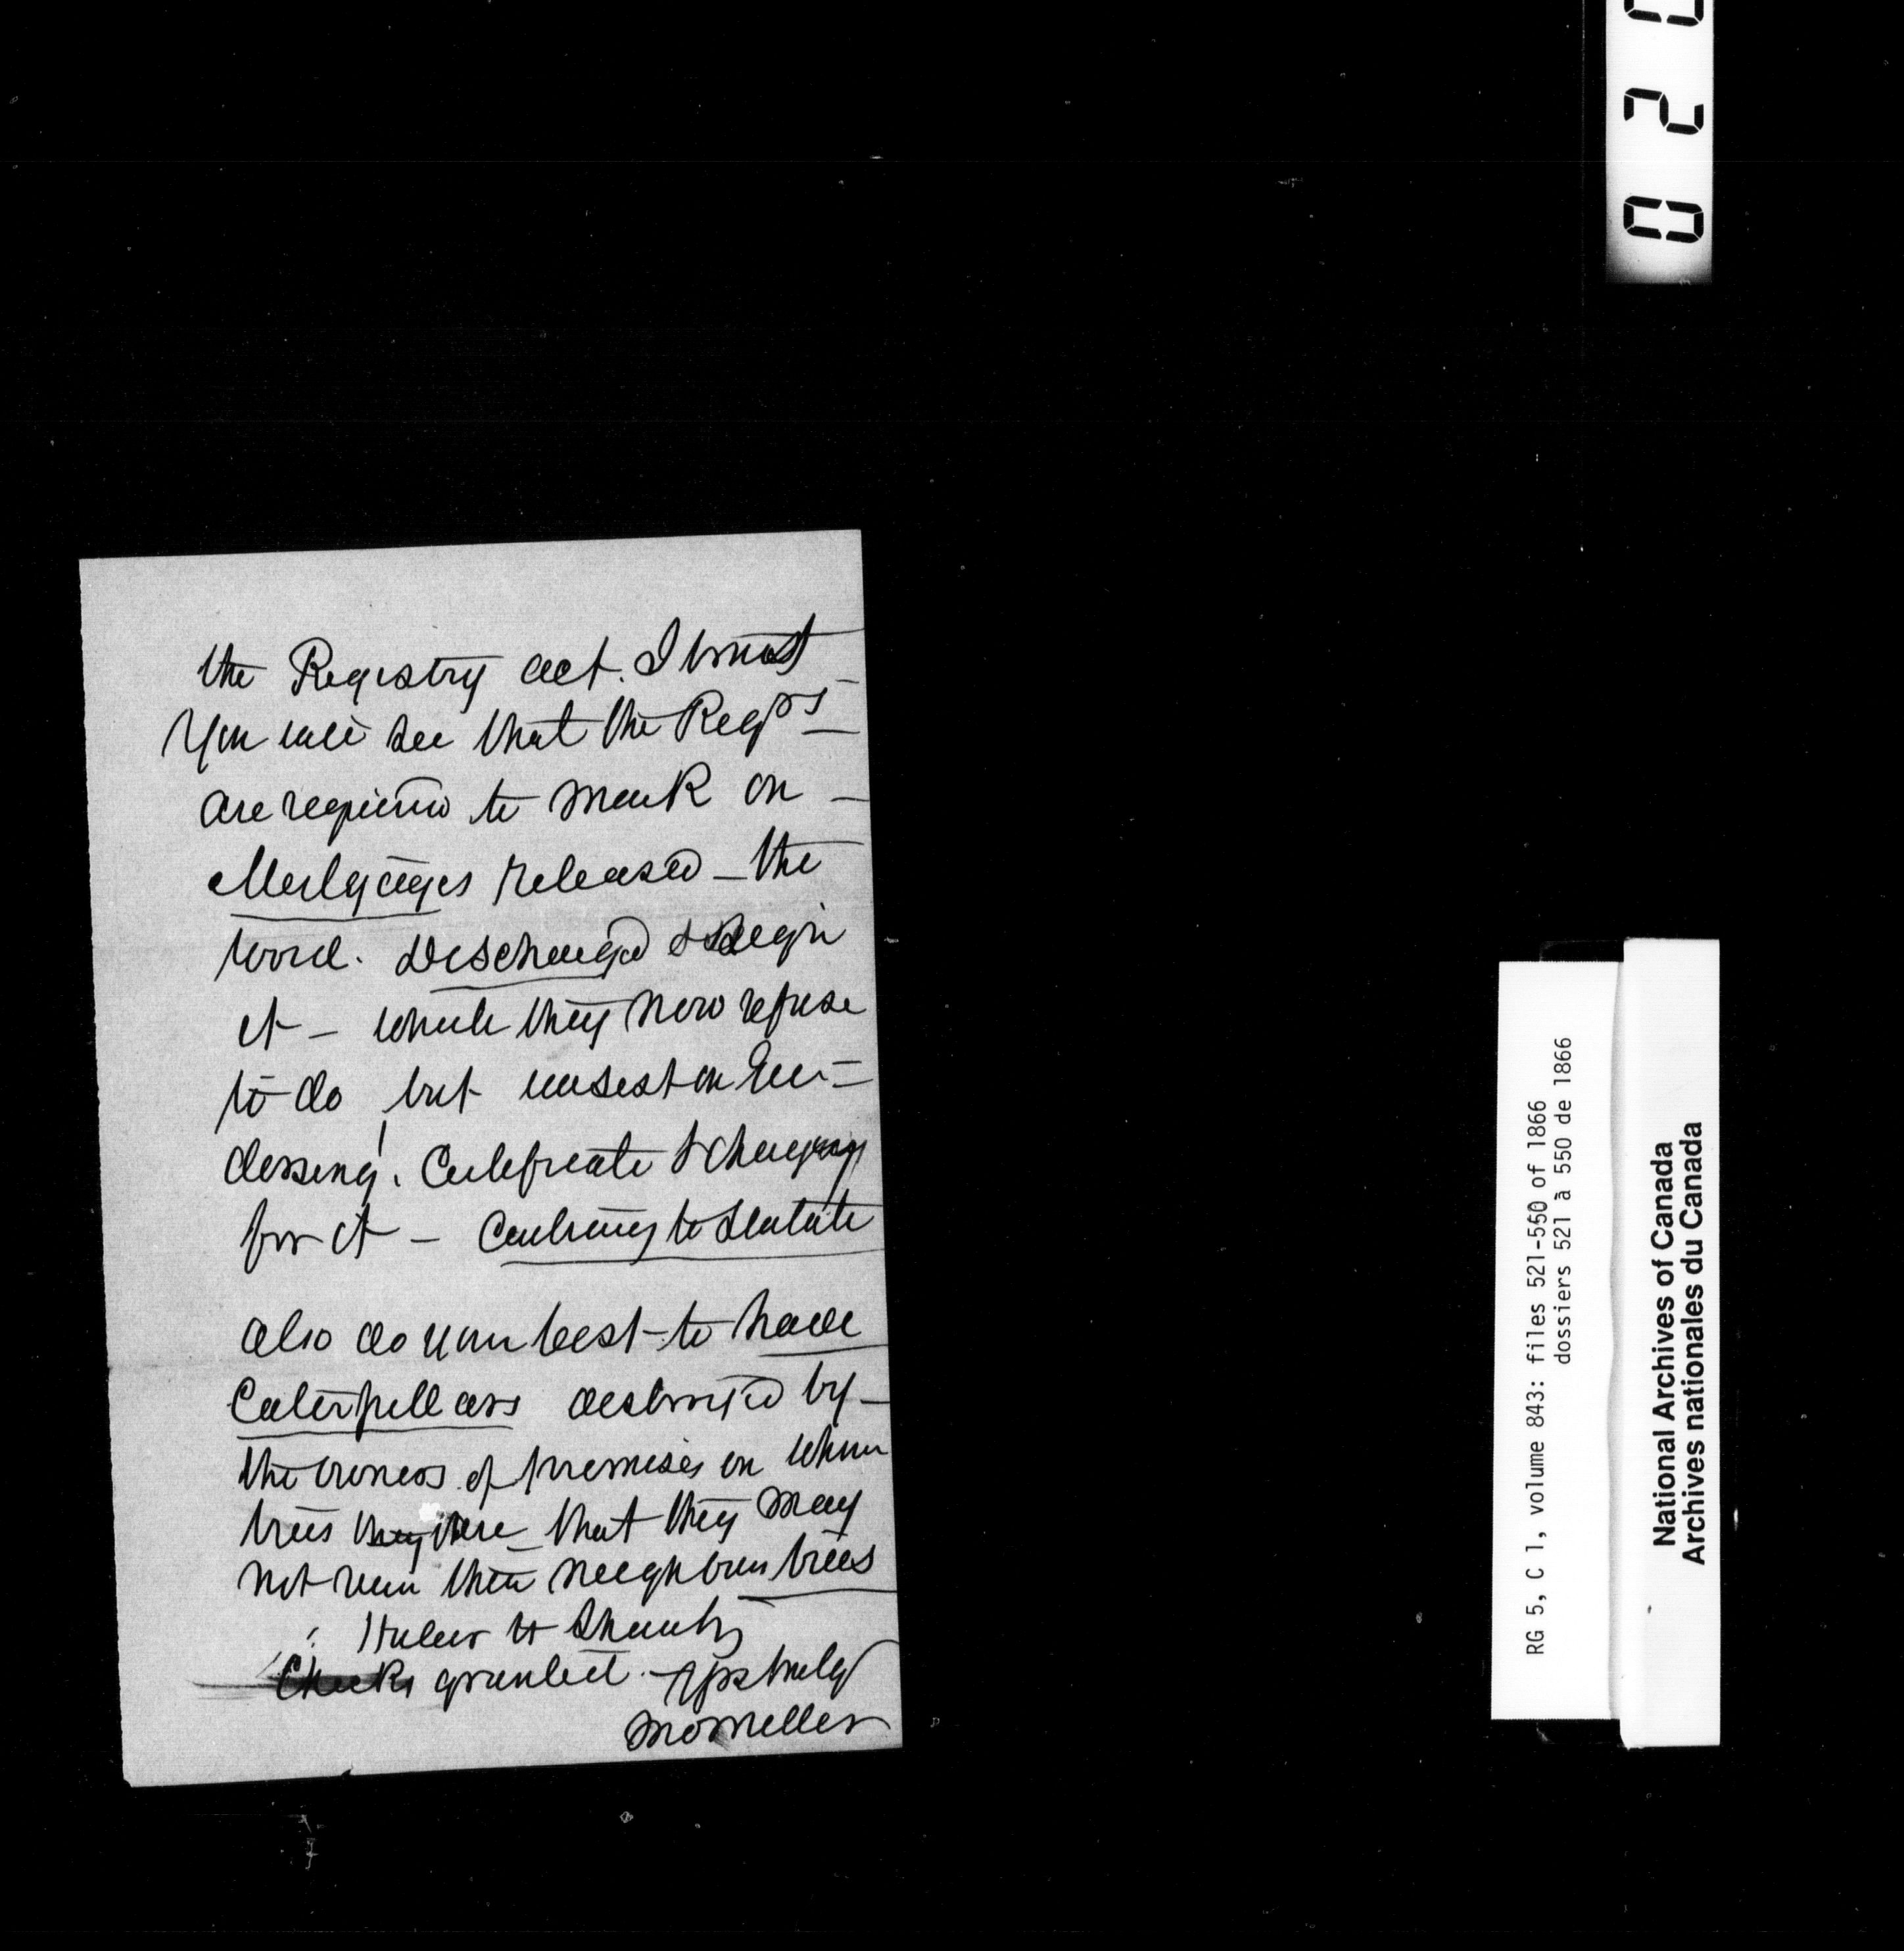 the Registry act. I trust
You will see that the Regrs
are required to mark on
Mortgages released – the
word. Discharged & sign
it – which they now refuse
to do but insist on En-
dorsing. Certificate & charging
for it – Contrary to Statute
Also do your best to have
Caterpillars destroyed by
the owners of premises on whose
trees they are that they may
not ruin their neighbours trees
granted. Yrs truly
020
RG 5, C 1, volume 843: files 521-550 of 1866
dossiers 521 à 550 de 1866
National Archives of Canada
Archives nationales du Canada